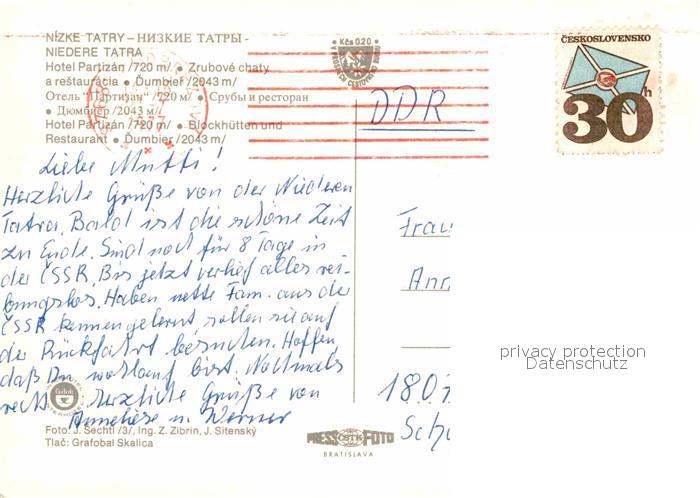 NÍZKE TATRY – НИЗКИЕ ТАТРЫ -
NIEDERE TATRA
Hotel Partizán /720 m/ ● Zrubové chaty
a reštaurácia ● Ďumbier /2043 m/
Отель "Партизан" /720 м/ ● Срубы и ресторан
● Дюмбиер /2043 м/
Hotel Partizán /720 m/ ● Blockhütten und
Restaurant ● Dumbier /2043 m/
Kčs 0.20
ČESKOSLOVENSKO
30h
DDR
Liebe Mutti!
Herzliche Grüße von der Niederen
Tatra. Bald ist die schöne Zeit
zu Ende. Sind noch für 8 Tage in
der ČSSR. Bis jetzt verlief alles rei-
bungslos. Haben nette Fam. aus der
ČSSR kennengelernt, sollen sie auf
der Rückfahrt besuchen. Hoffen,
daß Du wohlauf bist. Nochmals
recht herzliche Grüße von
Anneliese u. Werner
Frau
Ann
180
Sch
privacy protection
Datenschutz
Foto: J. Sechtl /3/, Ing. Z. Zibrin, J. Sitenský
Tlač: Grafobal Skalica
PRESS ČSTK FOTO
BRATISLAVA